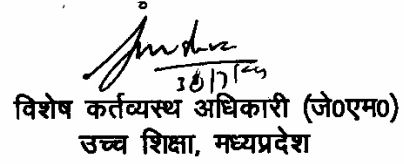 विशेष कर्तव्यस्थ अधिकारी (जे०एम०)
उच्च शिक्षा, मध्यप्रदेश